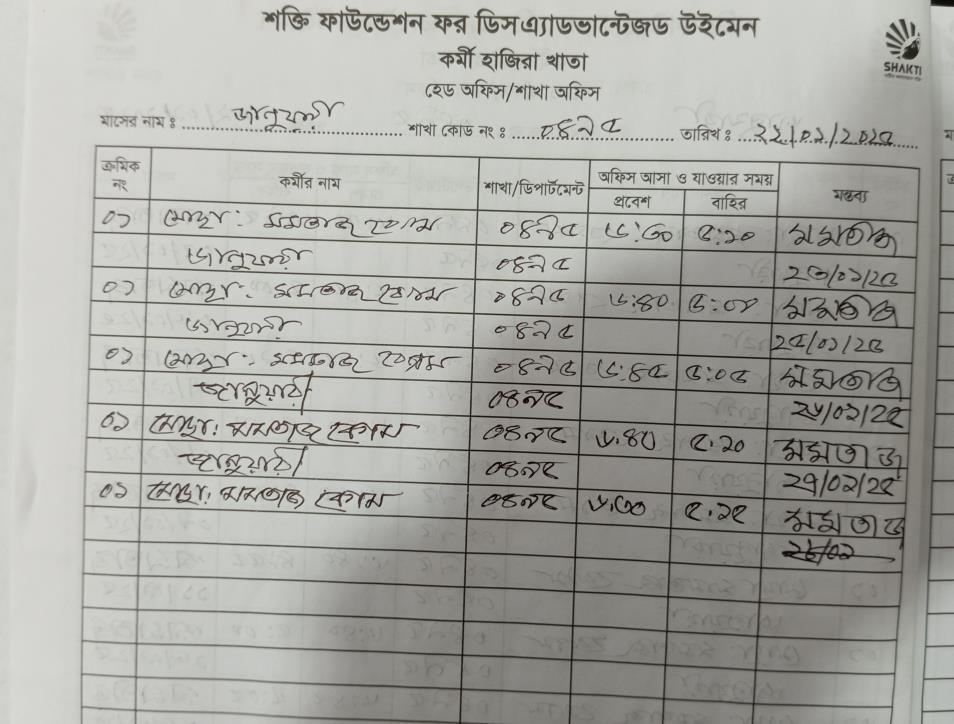 শক্তি ফাউন্ডেশন ফর ডিসএ্যাডভান্টেজড উইমেন
কর্মী হাজিরা খাতা
হেড অফিস/শাখা অফিস
SHAKTI
মাসের নাম ঃ জানুয়ারী শাখা কোড নং ঃ ০৪৯৫ তারিখ ঃ ২২/০১/২০২৫
ক্রমিক নং কর্মীর নাম শাখা/ডিপার্টমেন্ট অফিস আসা ও যাওয়ার সময় মন্তব্য
প্রবেশ বাহির
০১ মোছা: মমতাজ বেগম ০৪৯৫ ৮:৩০ ৫:২০ মমতাজ
জানুয়ারী ০৪৯৫ ২৩/০১/২৫
০১ মোছা: মমতাজ বেগম ০৪৯৫ ৮:৪০ ৫:০৮ মমতাজ
জানুয়ারী ০৪৯৫ ২৫/০১/২৫
০১ মোছা: মমতাজ বেগম ০৪৯৫ ৮:৪৫ ৫:০৫ মমতাজ
জানুয়ারী ০৪৯৫ ২৬/০১/২৫
০১ মোছা: মমতাজ বেগম ০৪৯৫ ৮.৪০ ৫.২০ মমতাজ
জানুয়ারী ০৪৯৫ ২৭/০১/২৫
০১ মোছা: মমতাজ বেগম ০৪৯৫ ৮.৩০ ৫.১৫ মমতাজ